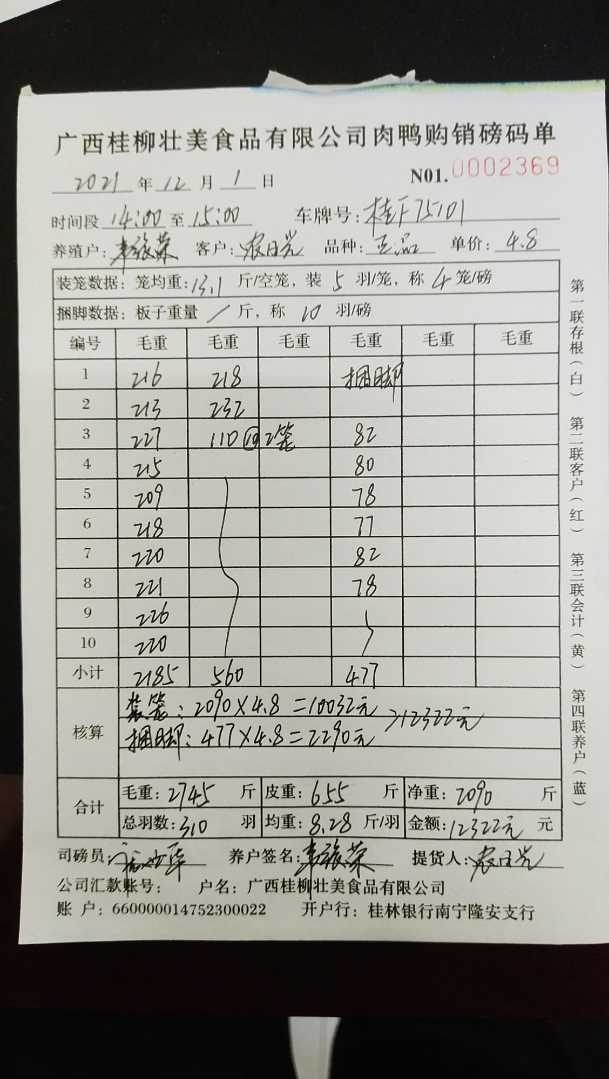 广西桂柳壮美食品有限公司肉鸭购销磅码单
2021 年 12 月 1 日 N01.0002369
时间段 14:00 至 15:00 车牌号: 桂F75101
养殖户: 韦振荣 客户: 农日光 品种: 正品 单价: 4.8
装笼数据: 笼均重: 13.1 斤/空笼, 装 5 羽/笼, 称 4 笼/磅
捆脚数据: 板子重量 / 斤, 称 10 羽/磅
编号 毛重 毛重 毛重 毛重 毛重 毛重
1 216 218 捆脚
2 213 232
3 227 110 2笼 82
4 215 80
5 209 78
6 218 77
7 220 82
8 221 78
9 226
10 220
小计 2185 560 477
核算
装笼: 2090×4.8=10032元
>12322元
捆脚: 477×4.8=2290元
合计
毛重: 2745 斤 皮重: 655 斤 净重: 2090 斤
总羽数: 310 羽 均重: 8.28 斤/羽 金额: 12322元 元
司磅员: 养户签名: 韦振荣 提货人: 农日光
公司汇款账号: 户名: 广西桂柳壮美食品有限公司
账 户: 660000014752300022 开户行: 桂林银行南宁隆安支行
第一联存根(白) 第二联客户(红) 第三联会计(黄) 第四联养户(蓝)